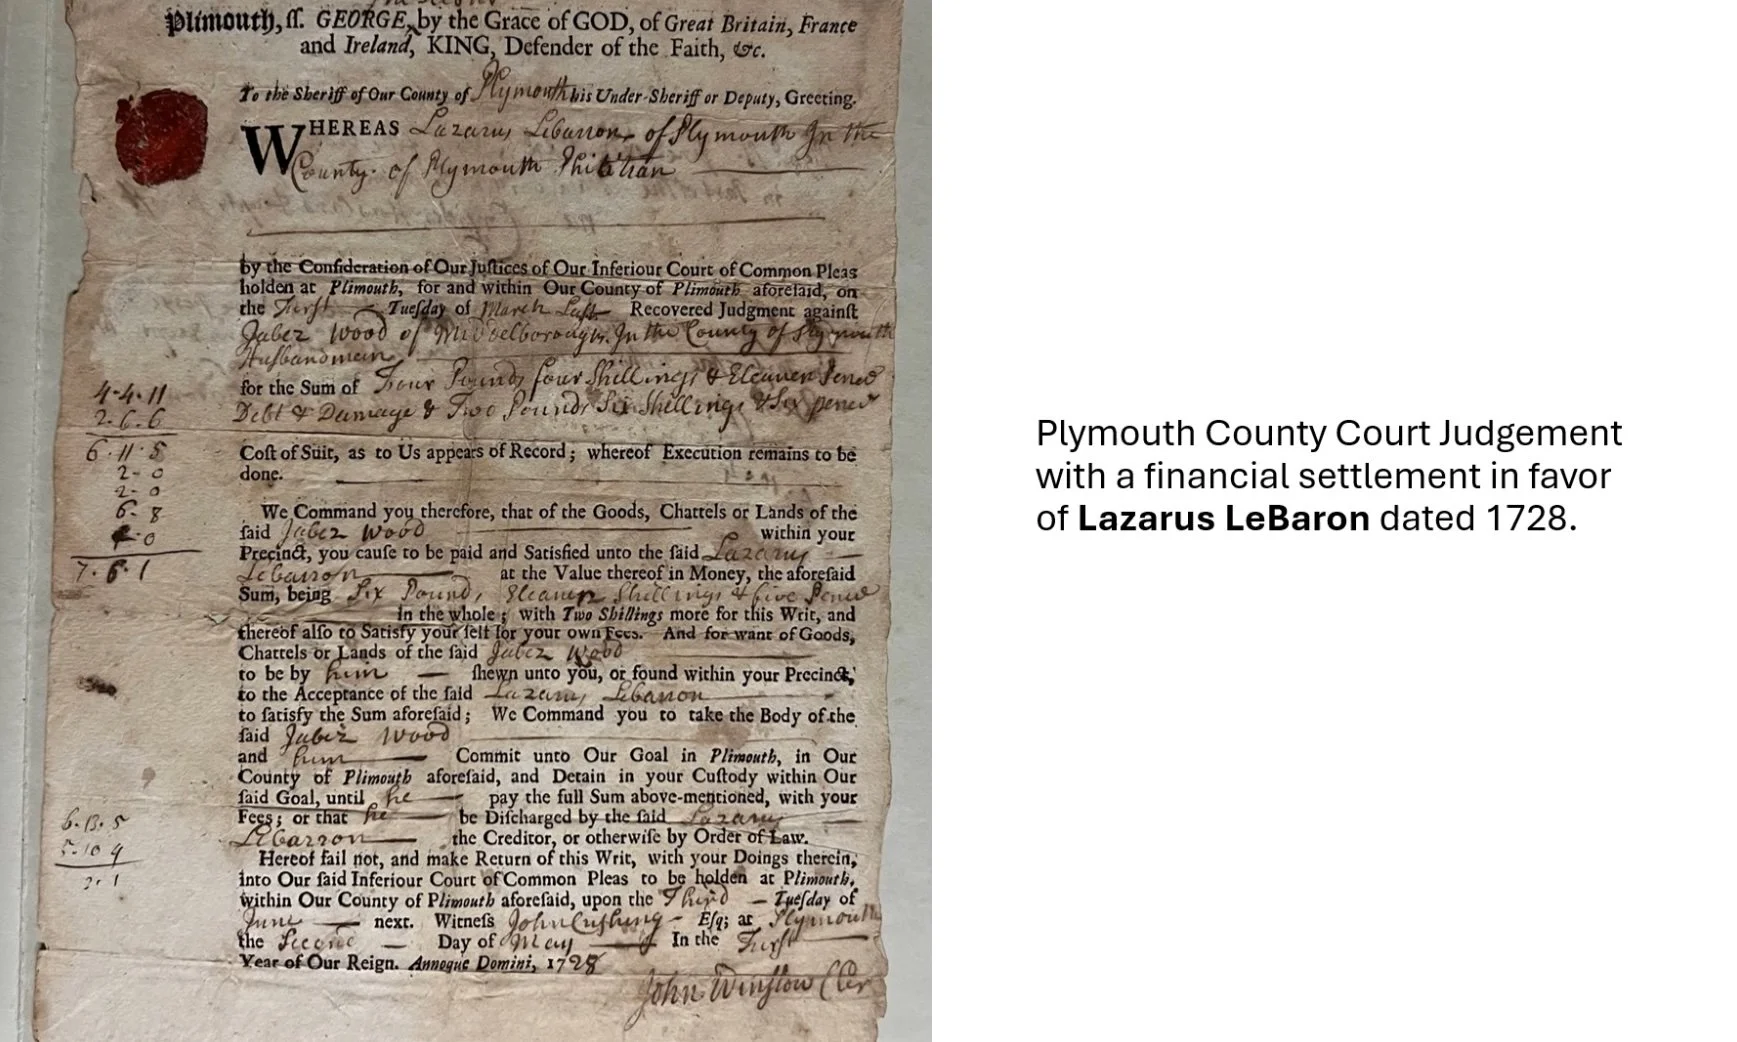 Plimouth, ſſ. GEORGE, by the Grace of GOD, of Great Britain, France
and Ireland, KING, Defender of the Faith, &c.
To the Sheriff of Our County of Plymouth his Under-Sheriff or Deputy, Greeting.
WHEREAS Lazarus Lebarron of Plymouth In the
County of Plymouth
by the Conſideration of Our Juſtices of Our Inferiour Court of Common Pleas
holden at Plimouth, for and within Our County of Plimouth aforeſaid, on
the Furſt Tueſday of March Laſt Recovered Judgment againſt
Jabez Wood of Middelborough In the County of Plymouth
Huſbandman
for the Sum of Four Pounds four Shillings & Eleaven Pence
Debt & Damage & Two Pounds Six Shillings & Six pence
4-4-11
2-6-6
6-11-5
2-0
2-0
6-8
-0
7-6-1
Coſt of Suit, as to Us appears of Record; whereof Execution remains to be
done.
We Command you therefore, that of the Goods, Chattels or Lands of the
ſaid Jabez Wood within your
Precinct, you cauſe to be paid and Satisfied unto the ſaid Lazarus
Lebarron at the Value thereof in Money, the aforeſaid
Sum, being Six Pounds, Eleaven Shillings & five Pence
in the whole; with Two Shillings more for this Writ, and
thereof alſo to Satisfy your ſelf for your own Fees. And for want of Goods,
Chattels or Lands of the ſaid Jabez Wood
to be by him ſhewn unto you, or found within your Precinct,
to the Acceptance of the ſaid Lazarus Lebarron
to ſatisfy the Sum aforeſaid; We Command you to take the Body of the
ſaid Jabez Wood
and him Commit unto Our Goal in Plimouth, in Our
County of Plimouth aforeſaid, and Detain in your Cuſtody within Our
ſaid Goal, until he pay the full Sum above-mentioned, with your
Fees; or that he be Diſcharged by the ſaid Lazarus
Lebarron the Creditor, or otherwiſe by Order of Law.
6-13-5
-10 9
2-1
Hereof fail not, and make Return of this Writ, with your Doings therein,
into Our ſaid Inferiour Court of Common Pleas to be holden at Plimouth,
within Our County of Plimouth aforeſaid, upon the Third Tueſday of
June next. Witneſs John Cushing Eſq; at Plymouth
the Second Day of May In the Furſt
Year of Our Reign. Annoque Domini, 1728
John Winslow Cler
Plymouth County Court Judgement
with a financial settlement in favor
of Lazarus LeBaron dated 1728.